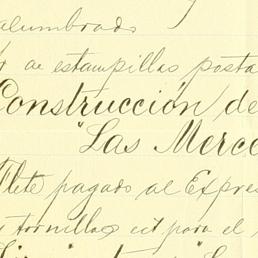 alumbrado
de estampillas posta
Construcción de
"Las Merce
Flete pagado al Expres
tornillos &c para el